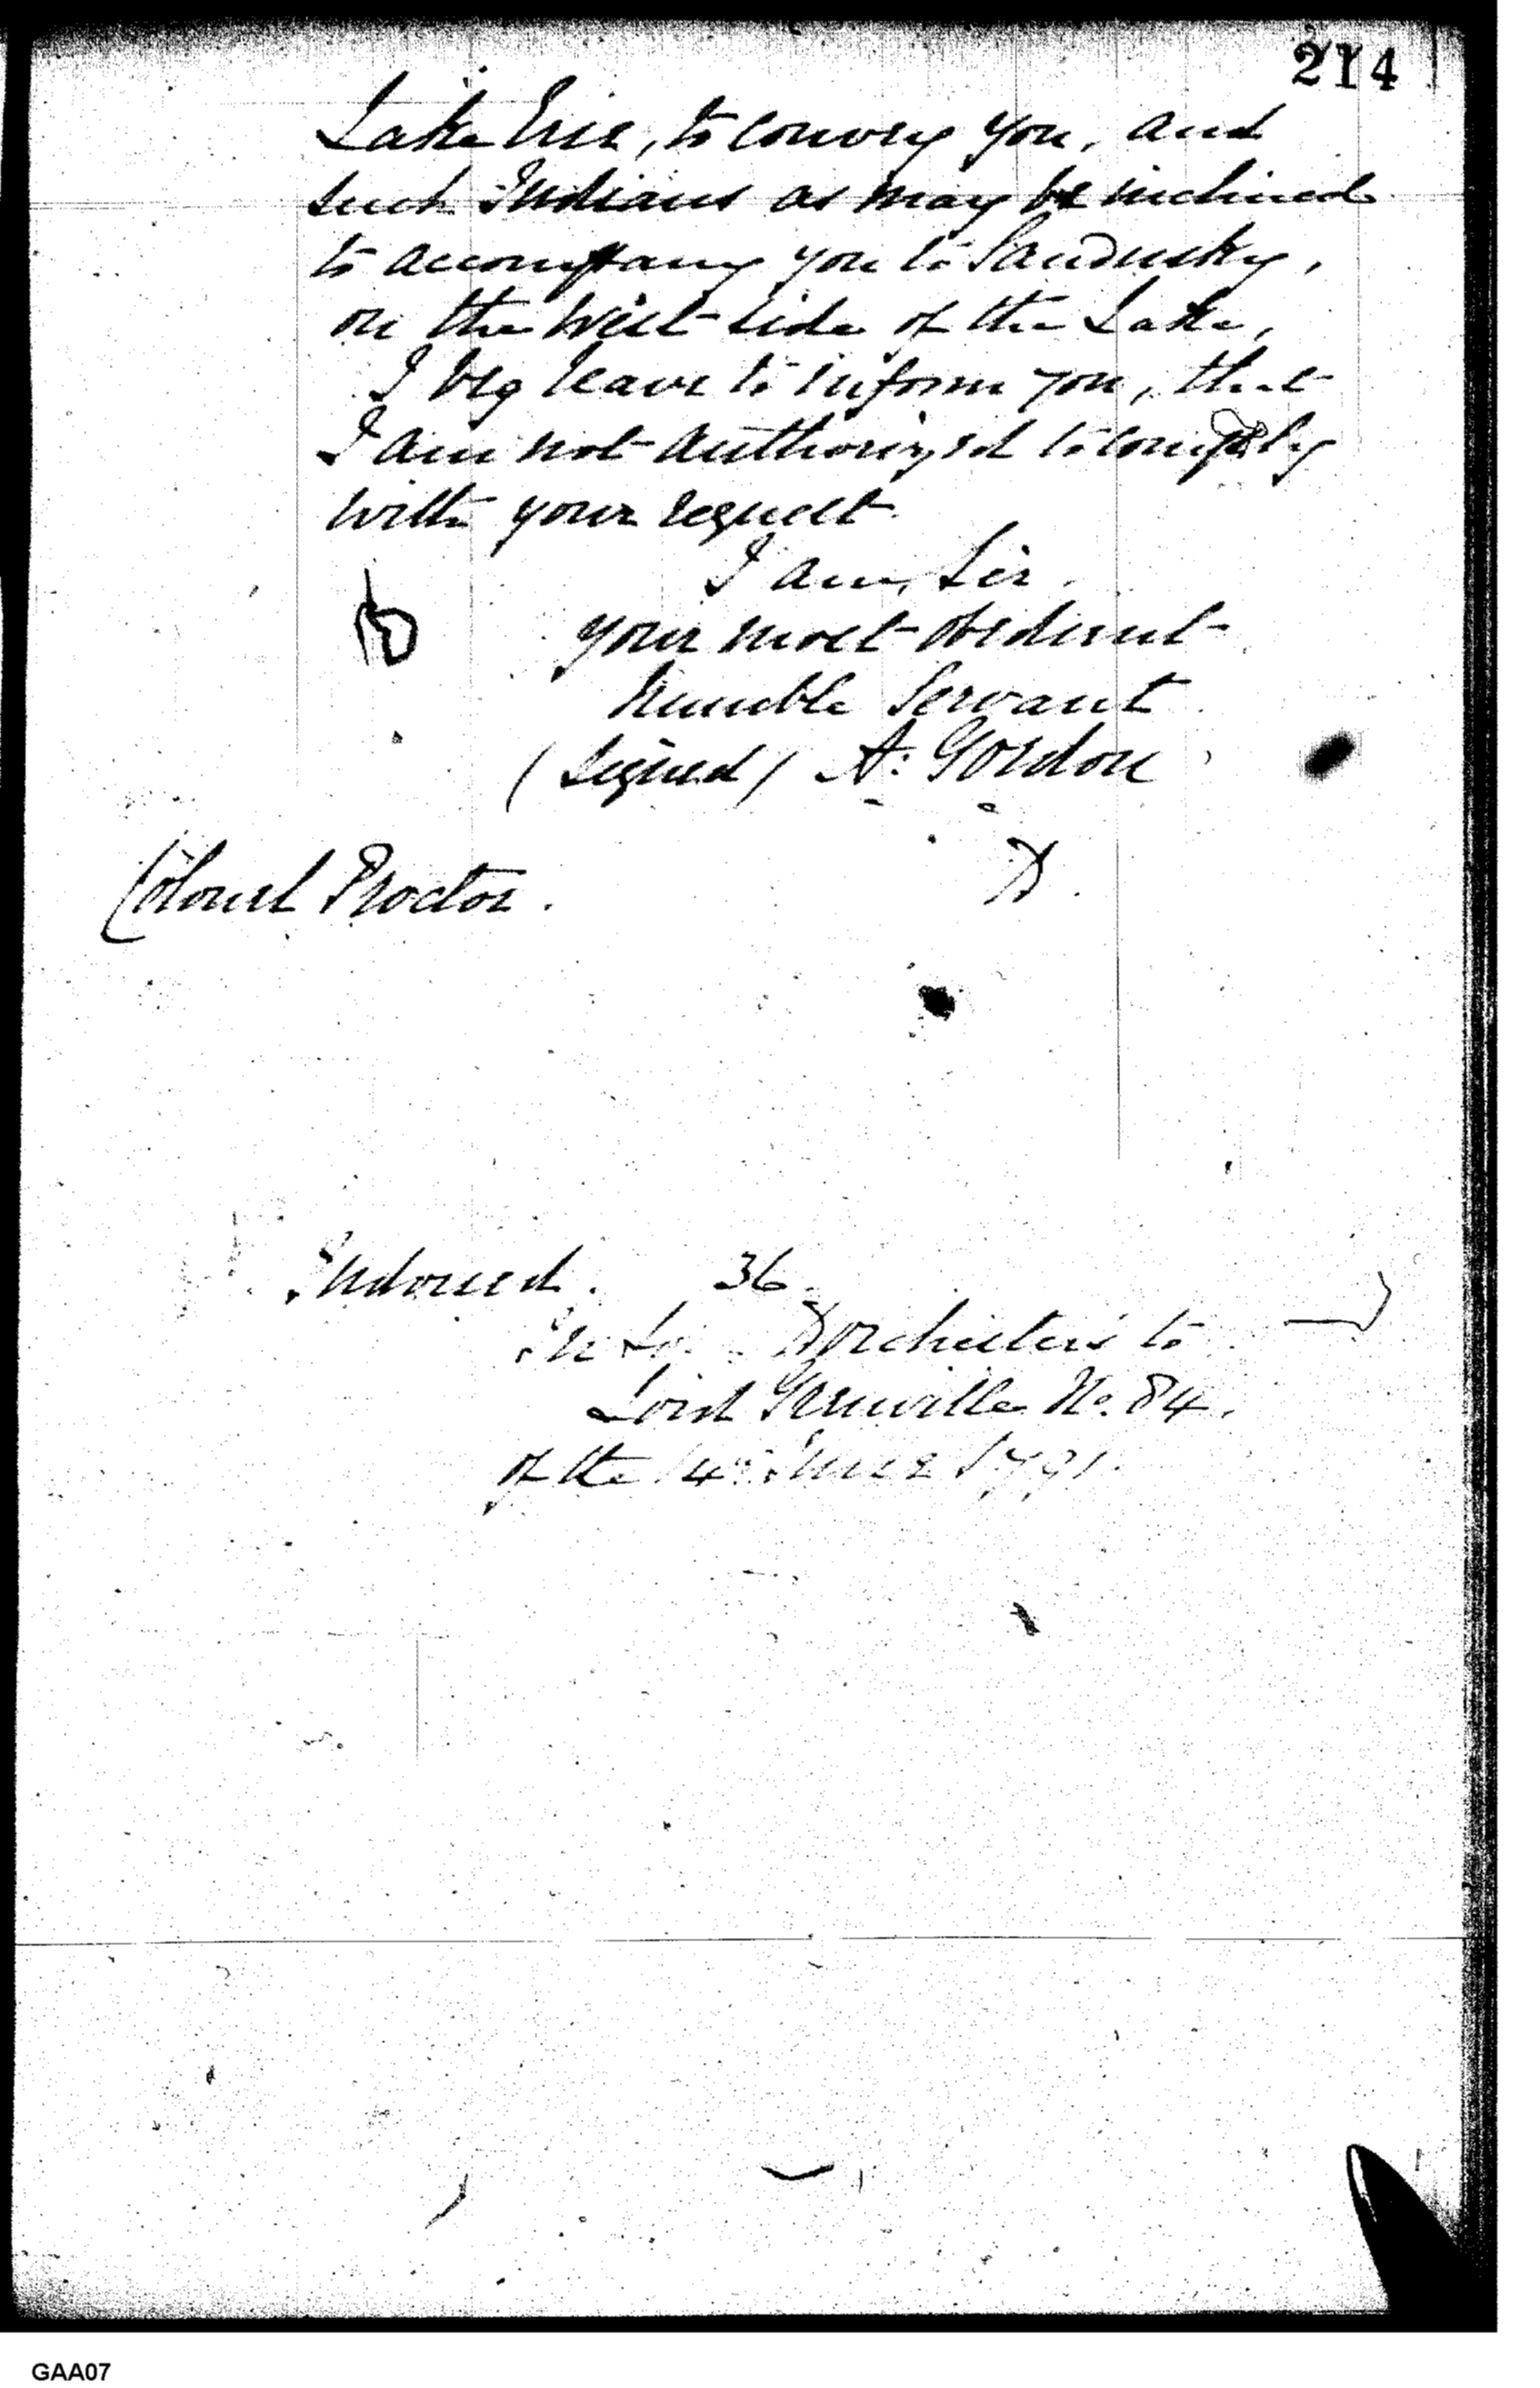 214
Lake Erie, to convey you, and
such Indians as may be inclined
to accompany you to Sandusky,
on the West side of the Lake,
I beg leave to inform you, that
I am not authorized to comply
with your request
I am, Sir.
your most obedient
humble Servant
(signed) A: Gordon
Colonel Proctor.
Indorsed. 36.
In Dorchester's to
Lord Grenville No. 84.
of the 14th June 1791.
GAA07